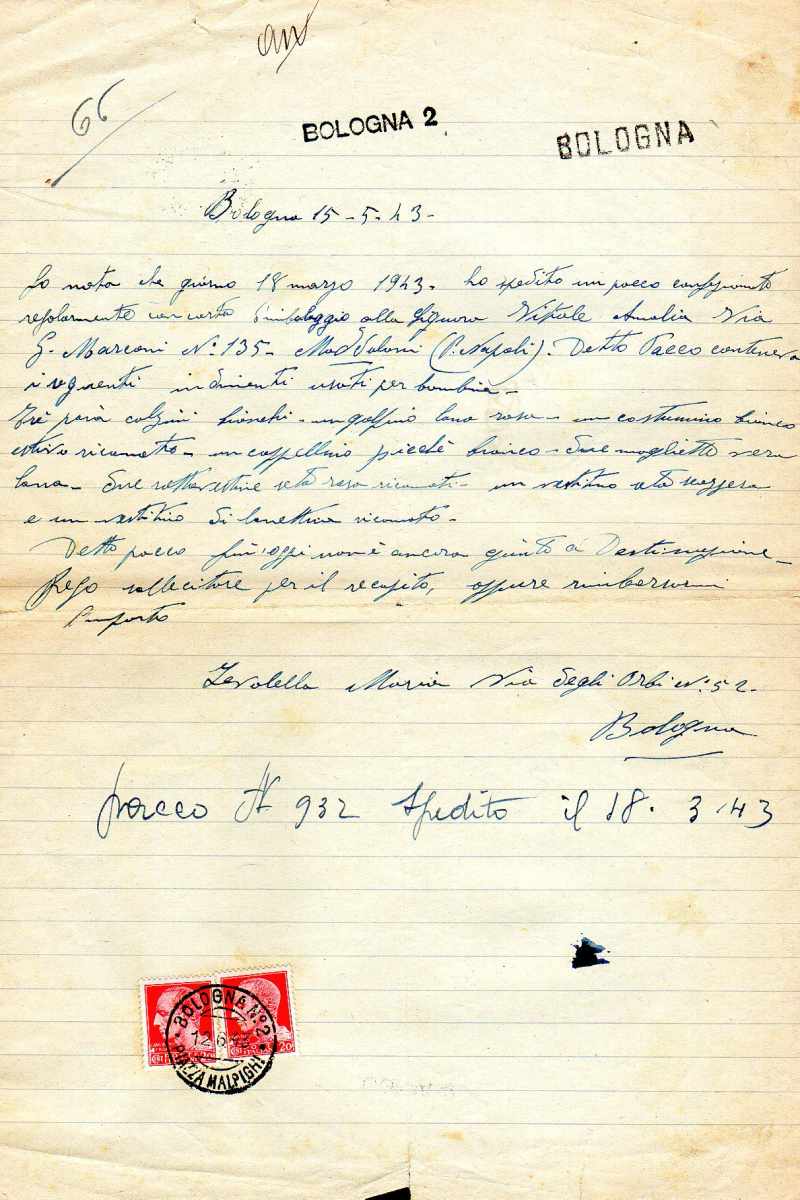 66
BOLOGNA 2
BOLOGNA
Bologna 15-5-43-
Fo nota che giorno 18 marzo 1943- ho spedito un pacco confezionato
regolarmente con carta d'imballaggio alla Signora Vitale Amalia Via
G. Marconi N° 135- Maddaloni (P. Napoli). Detto Pacco conteneva
i seguenti indimenti usati per bambina-
Trè paia calzini bianchi- un golfino lana rosa- un costumino bianco
estivo ricamato- un cappellino picchè bianco- due magliette vera
lana- due sottovestine seta rosa ricamati- un vestitino seta scozzese
e un vestitino di lanettina ricamato-
Detto pacco fin'oggi non è ancora giunto a Destinazione-
Prego sollecitare per il recapito, oppure rimborsarmi
l'importo
Zevolella Maria Via degli Orbi N° 52-
Bologna
pacco N 932 Spedito il 18. 3. 43
BOLOGNA N° 2
12.6.43
PIAZZA MALPIGHI
20